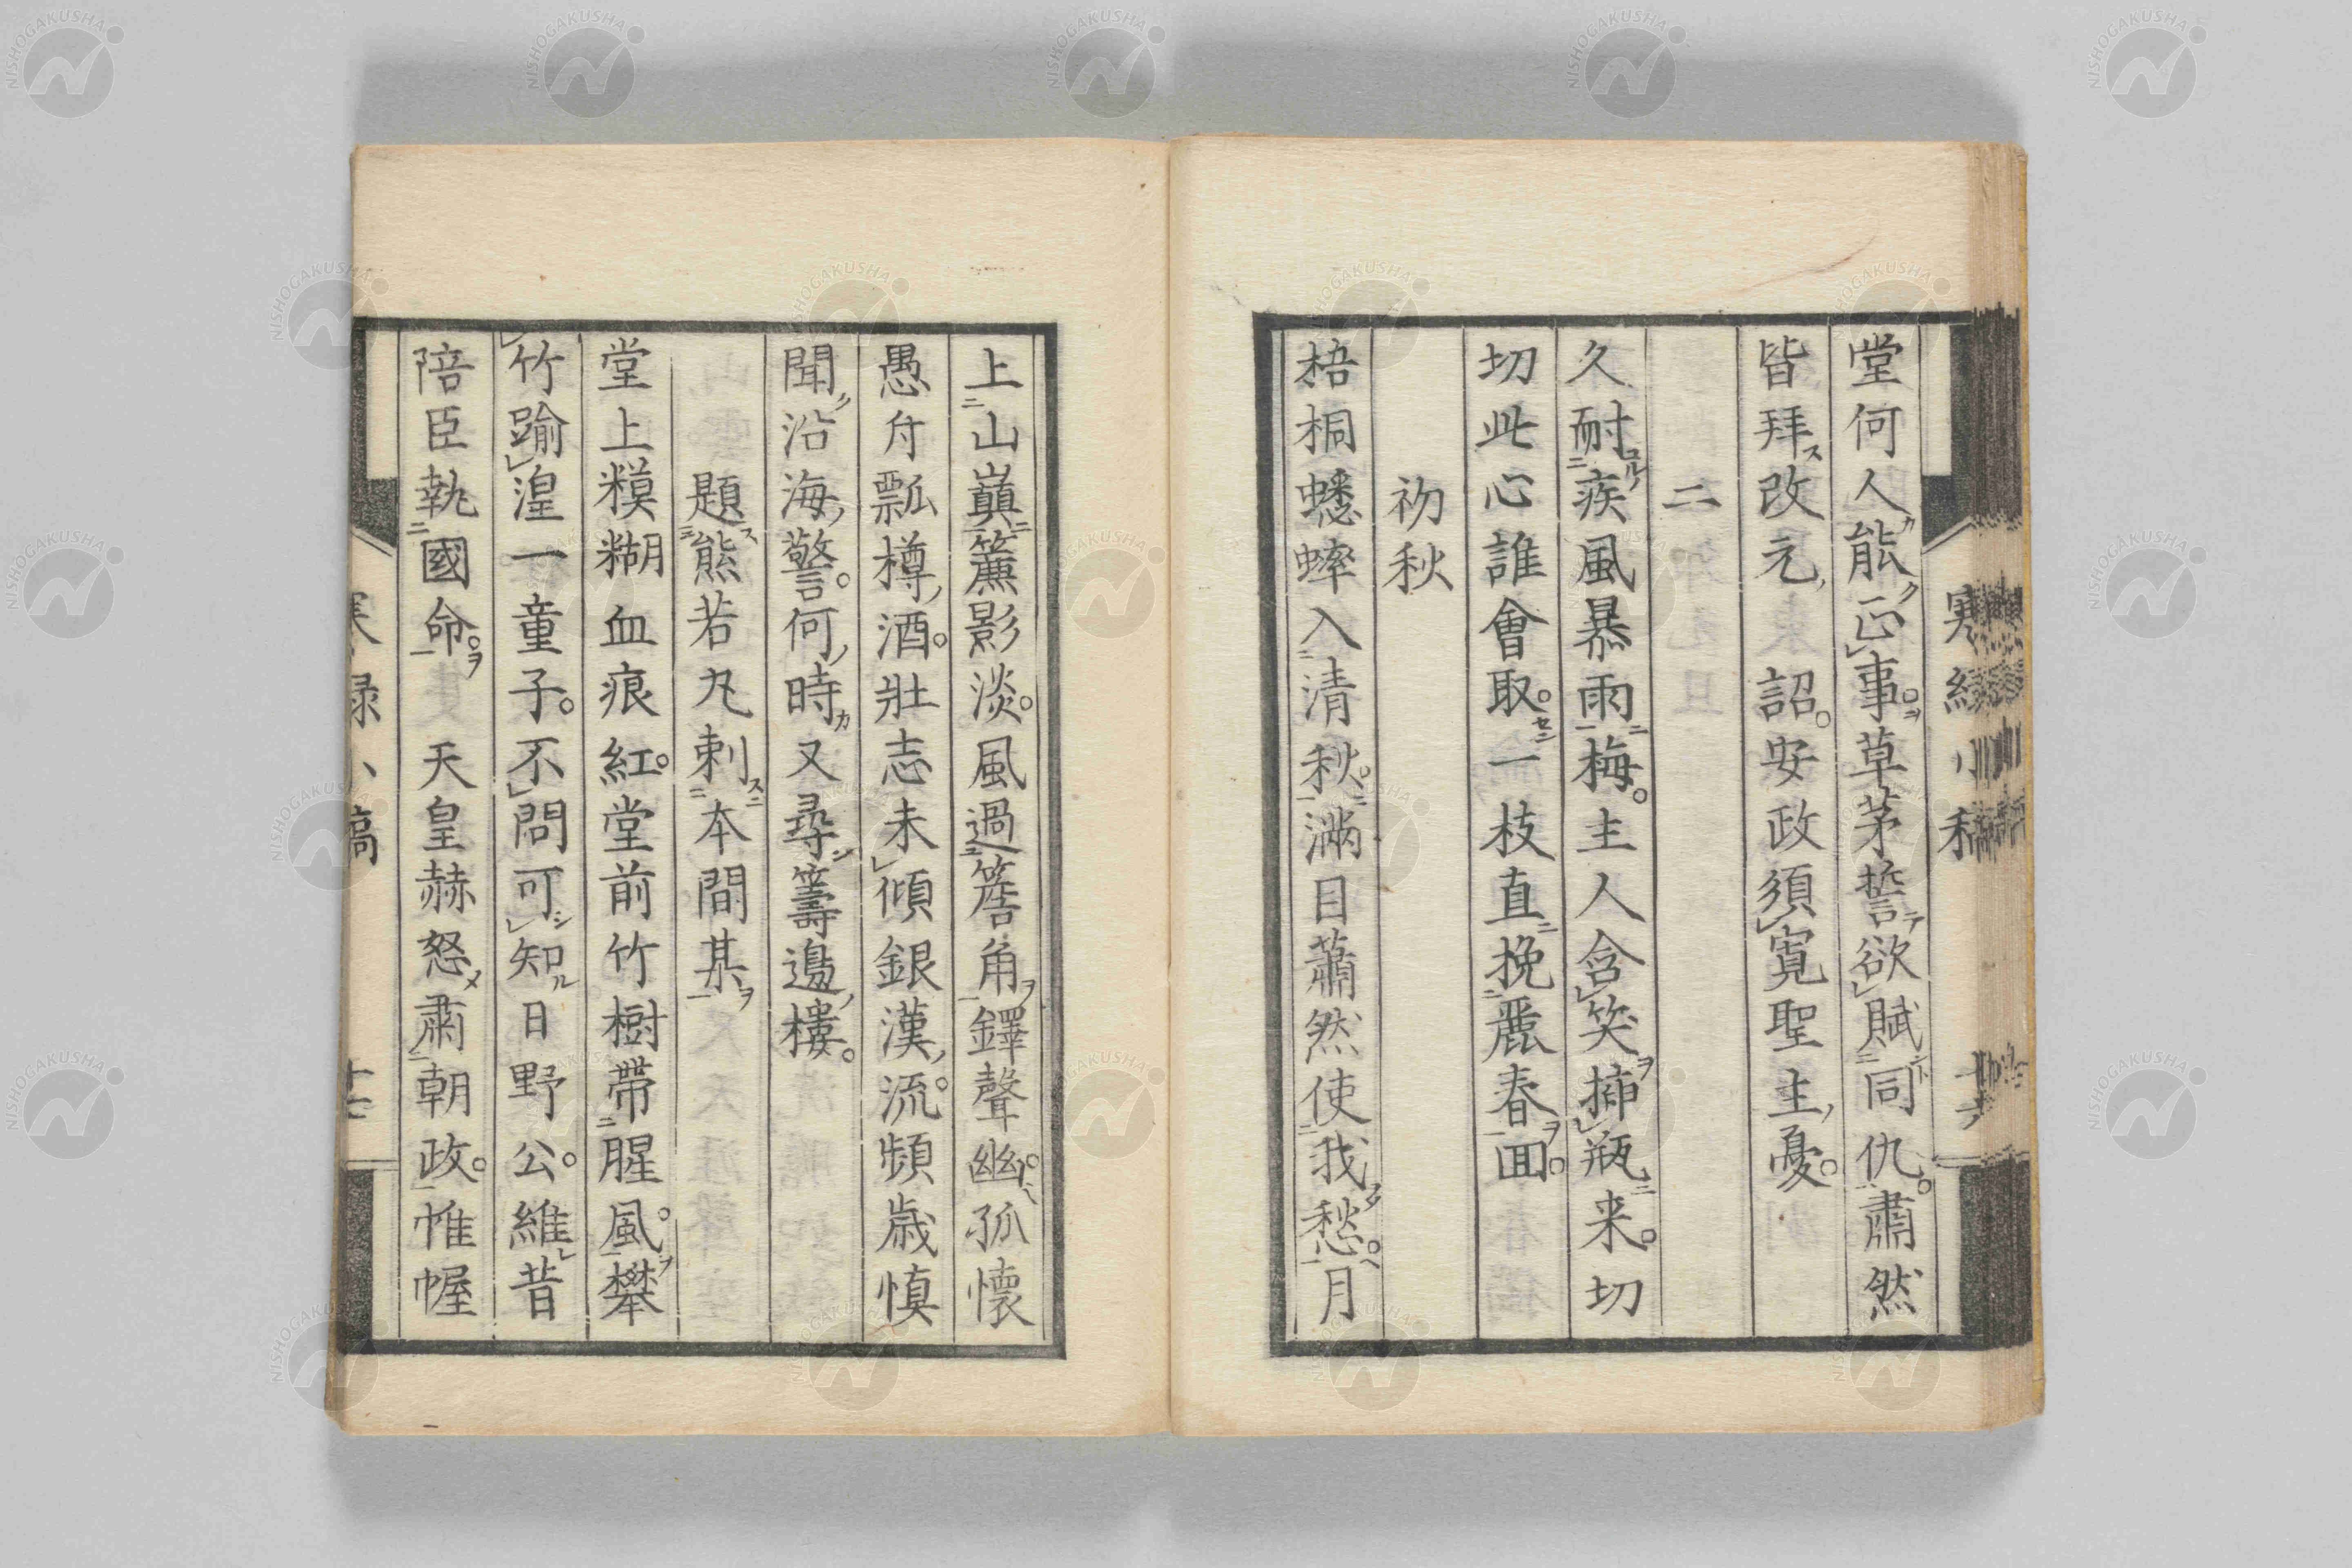 寒綠小稿
十六
堂何人能正事。草茅誓欲賦同仇。肅然
皆拜改元詔。安政須寬聖主憂。
二
久耐疾風暴雨梅。主人含笑挿瓶来。切
切此心誰會取。一枝直挽麗春回。
初秋
梧桐蟋蟀入清秋。滿目蕭然使我愁。月
上山巔簾影淡。風過簷角鐸聲幽。孤懷
愚舟瓢樽酒。壯志未傾銀漢流。頻歲慎
聞沿海警。何時又尋籌邊樓。
題熊若丸刺本間某
堂上糢糊血痕紅。堂前竹樹帶腥風。攀
竹踰湟一童子。不問可知日野公。維昔
陪臣執國命。天皇赫怒肅朝政。帷幄
綠小稿